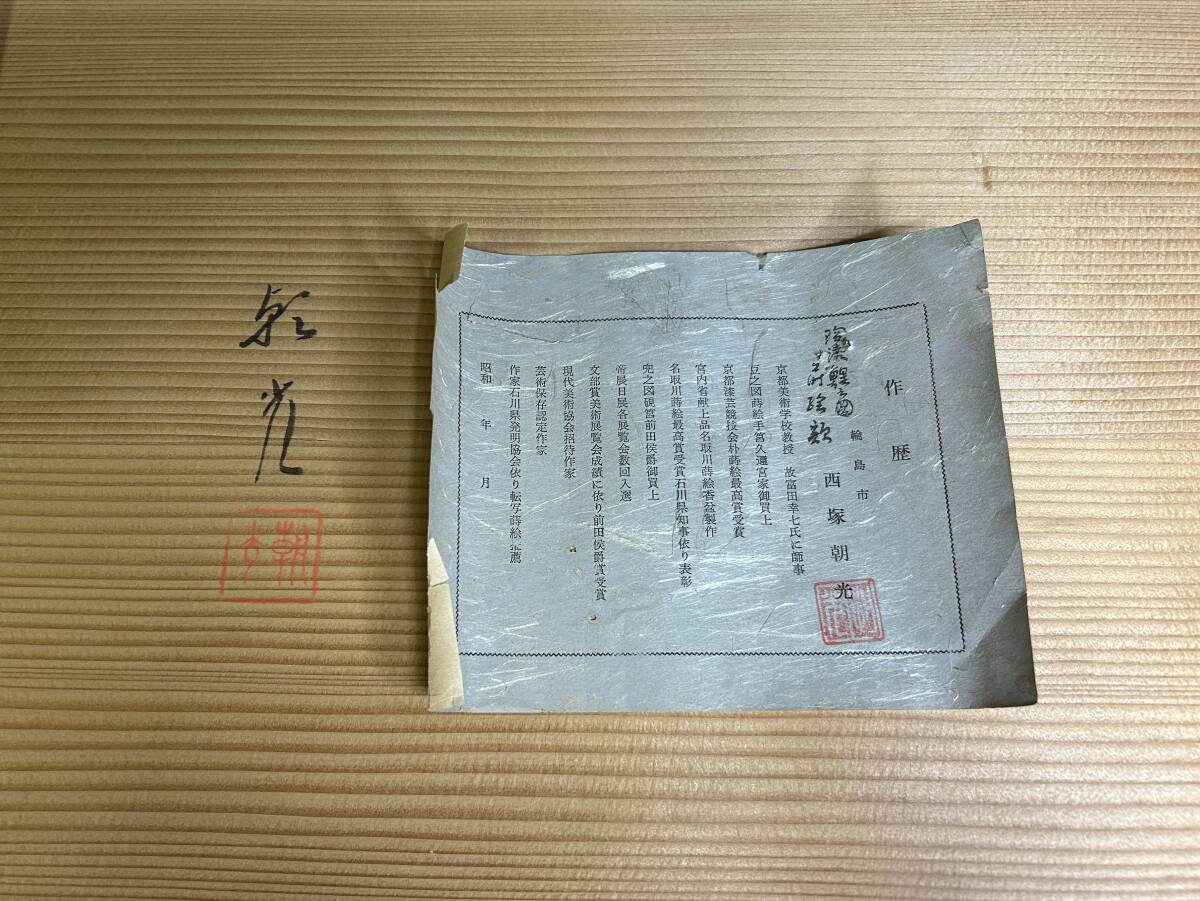 作歴
陶漆鯉之図
蒔絵額
輪島市
西塚朝光
京都美術学校教授 故富田幸七氏に師事
豆之図蒔絵手筥久邇宮家御買上
京都漆芸競技会朴蒔絵最高賞受賞
宮内省献上品名取川蒔絵香盆製作
名取川蒔絵最高賞受賞石川県知事依り表彰
兜之図硯筥前田侯爵御買上
帝展日展各展覧会数回入選
文部賞美術展覧会成績に依り前田侯爵賞受賞
現代美術協会招待作家
芸術保存認定作家
作家石川県発明協会依り転写蒔絵推薦
昭和 年 月
朝光
朝光